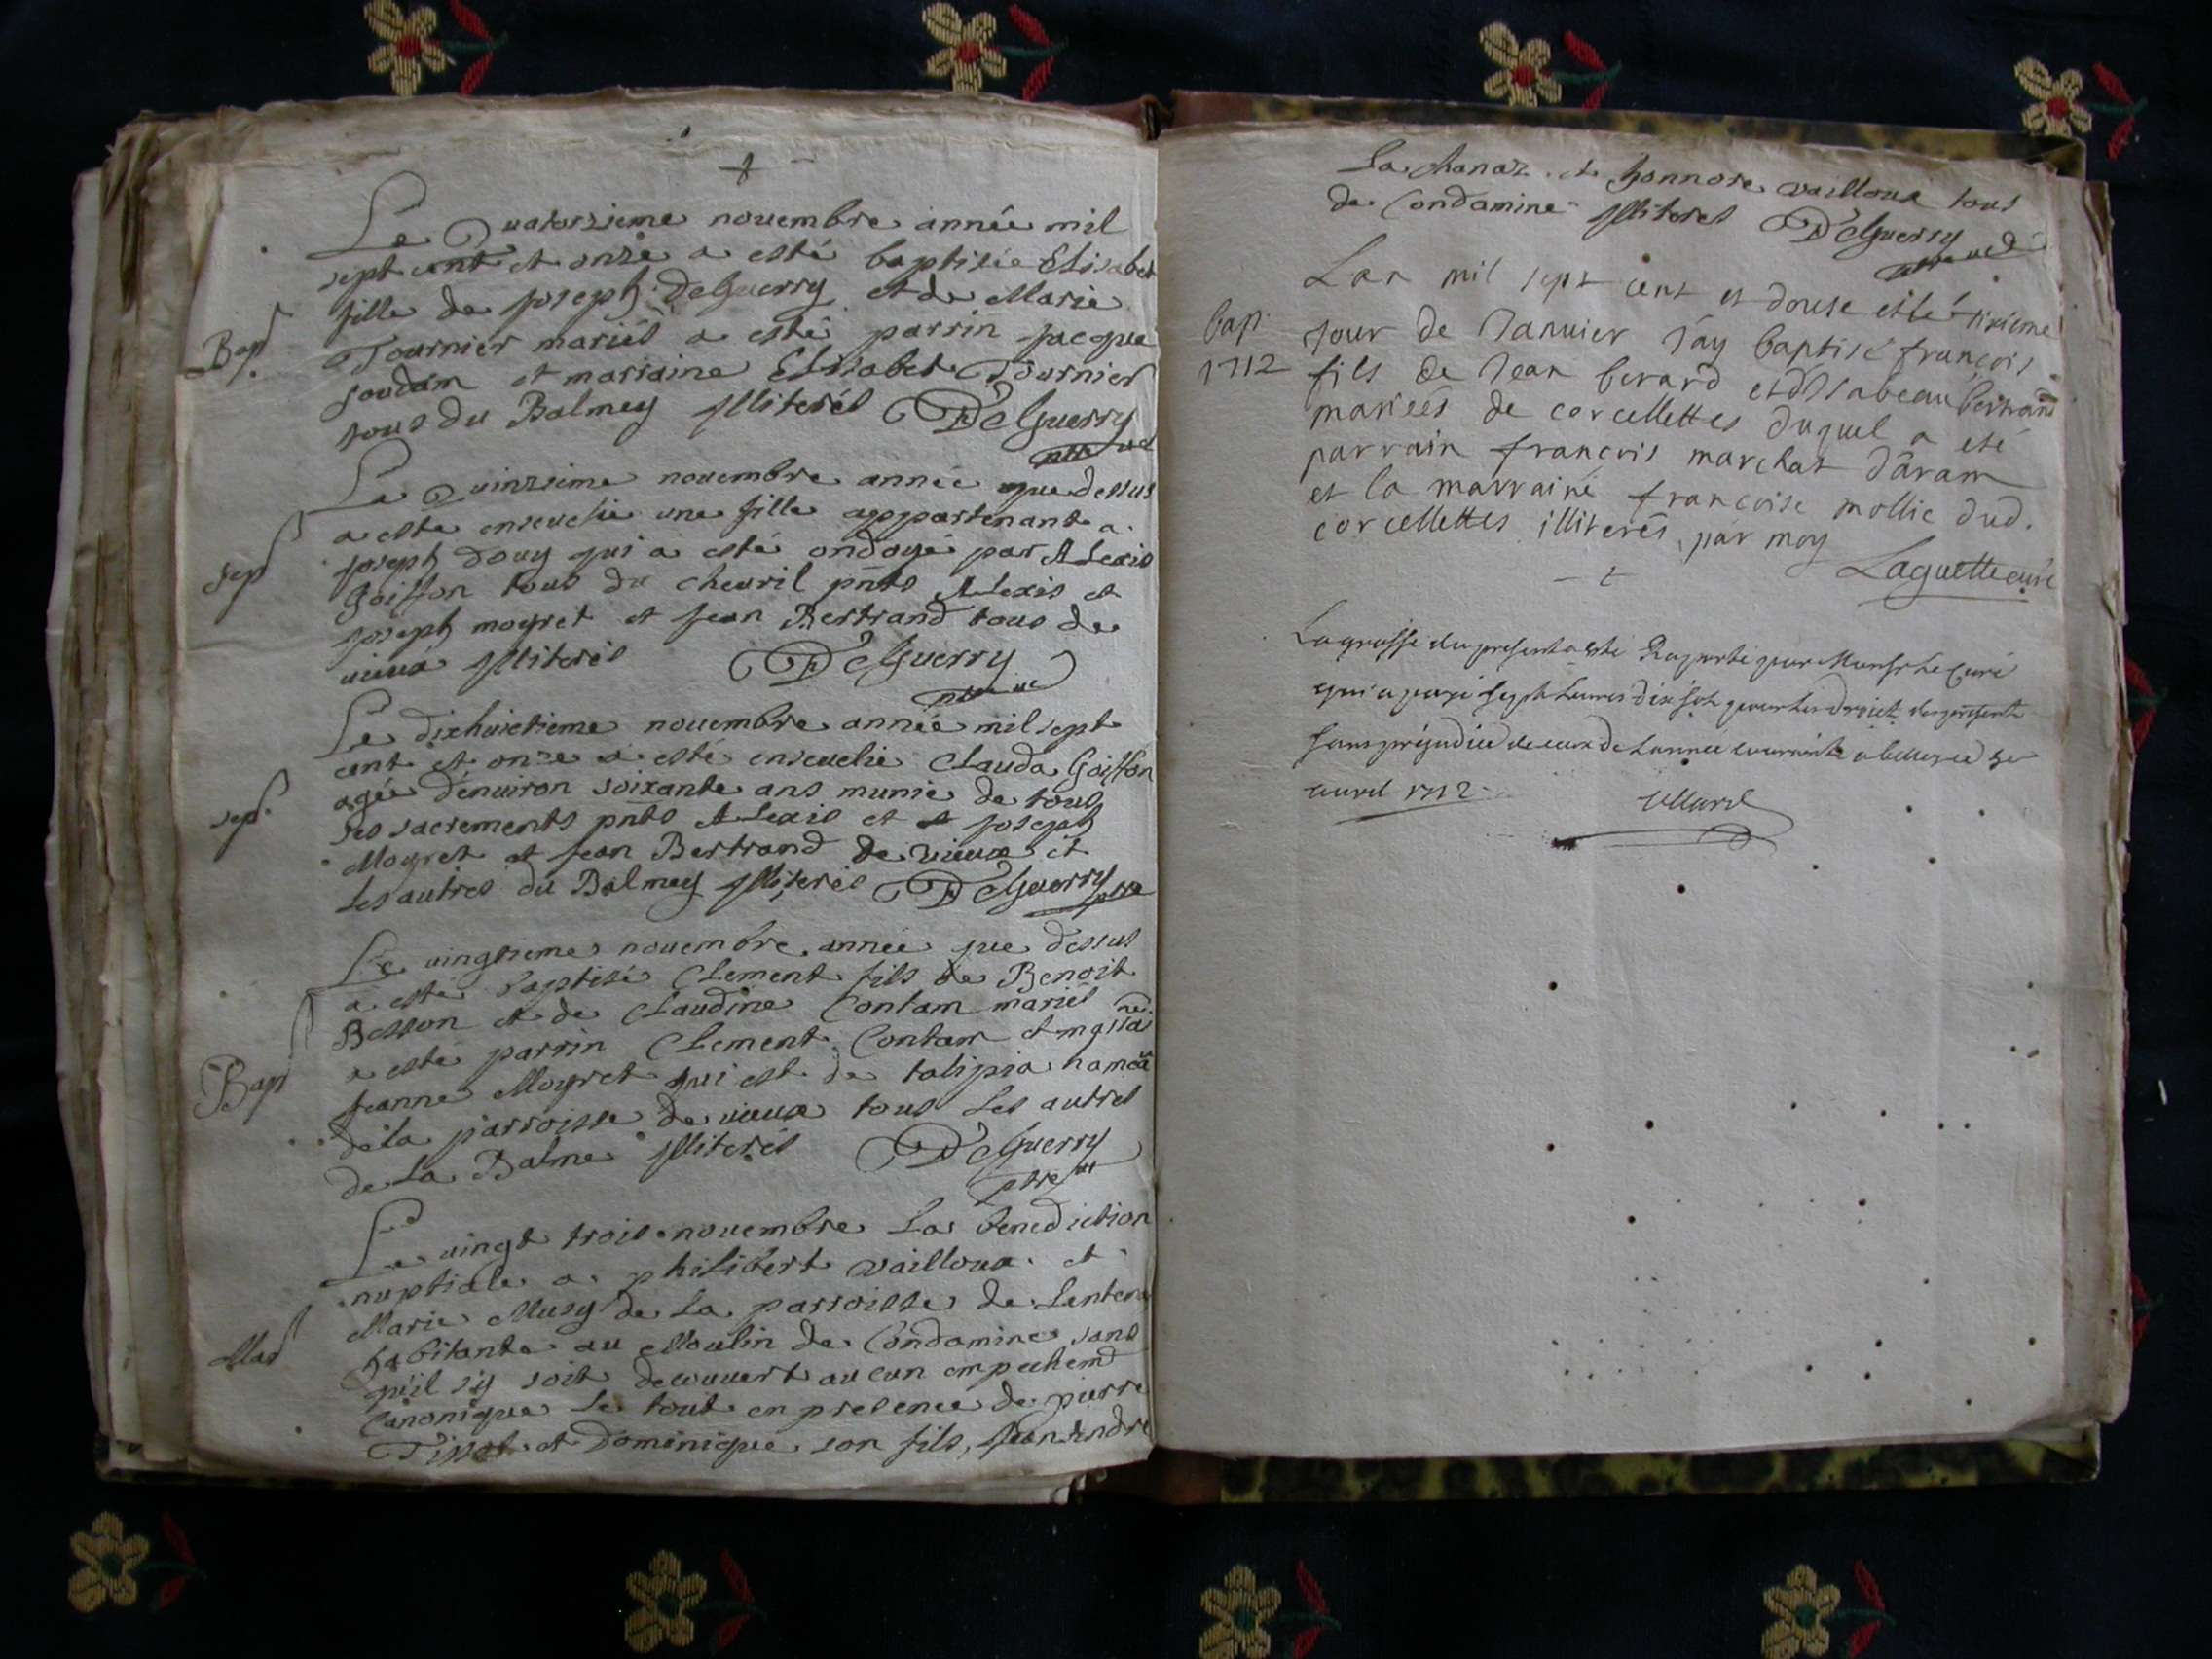 Le Quatorzieme nouembre année mil
sept cent et onze a esté baptisée Elisabet
fille de Joseph DeGuerry et de Marie
Bap
Tournier mariés a esté parrin Jacque
soudan et marraine Elisabet Tournier
tous du Balmey Illiterés DeGuerry
Le Quinzieme nouembre année que dessus
a esté enseuelie une fille appartenante a
Sep
Joseph Douy qui a esté ondoyé par Alexis
Goiffon tous du cheuril pnts Alexis et
Joseph moyret et Jean Bertrand tous de
uieux Illiterés DeGuerry
Le dixhuictieme nouembre année mil sept
cent et onze a esté enseuelie Clauda Goiffon
agée d'enuiron soixante ans munie de tous
sep.
ses sacrements pnts Alexis et Joseph
Moyret et Jean Bertrand de uieux et
les autres du Balmey Illiterés DeGuerry ptre
Le uingtieme nouembre année que dessus
a esté baptisé Clement fils de Benoit
Besson et de Claudine Contam mariés
a esté parrin Clement Contam et marrai ne.
Bap
Jeanne Moyret qui est de talipia hameau
de la parroisse de uieux tous les autres
de La Balme Illiterés DeGuerry
ptre
Le uingt trois nouembre La benediction
nuptiale a philibert vailloux et
Marie Musy de La parroisse de Lantena
Mar
habitante au Moulin de Condamine sans
qu'il s'y soit decouuert aucun empechemt
Canonique le tout en presence de pierre
Tissot et Dominique son fils, Jean André
La chanaz et honnore vailloux tous
de Condamine Illiterés DeGuerry
Lan mil sept cent et douse et le sixieme
bap.
1712
jour de Januier j'ay baptisé françois
fils de Jean berard et d'Isabeau bertrand
mariées de corcellettes duquel a eté
parrain françois marchat d'aram
et la marraine françoise mollie dud.
corcellettes illiterés, par moy
Laguette curé
La grosse du present a esté Raporté par Monsr le Curé
qui a payé sept liures dix sols pour les droict du present
sans préjudice de ceux de Lannée courrante a belley ce
auril 1712